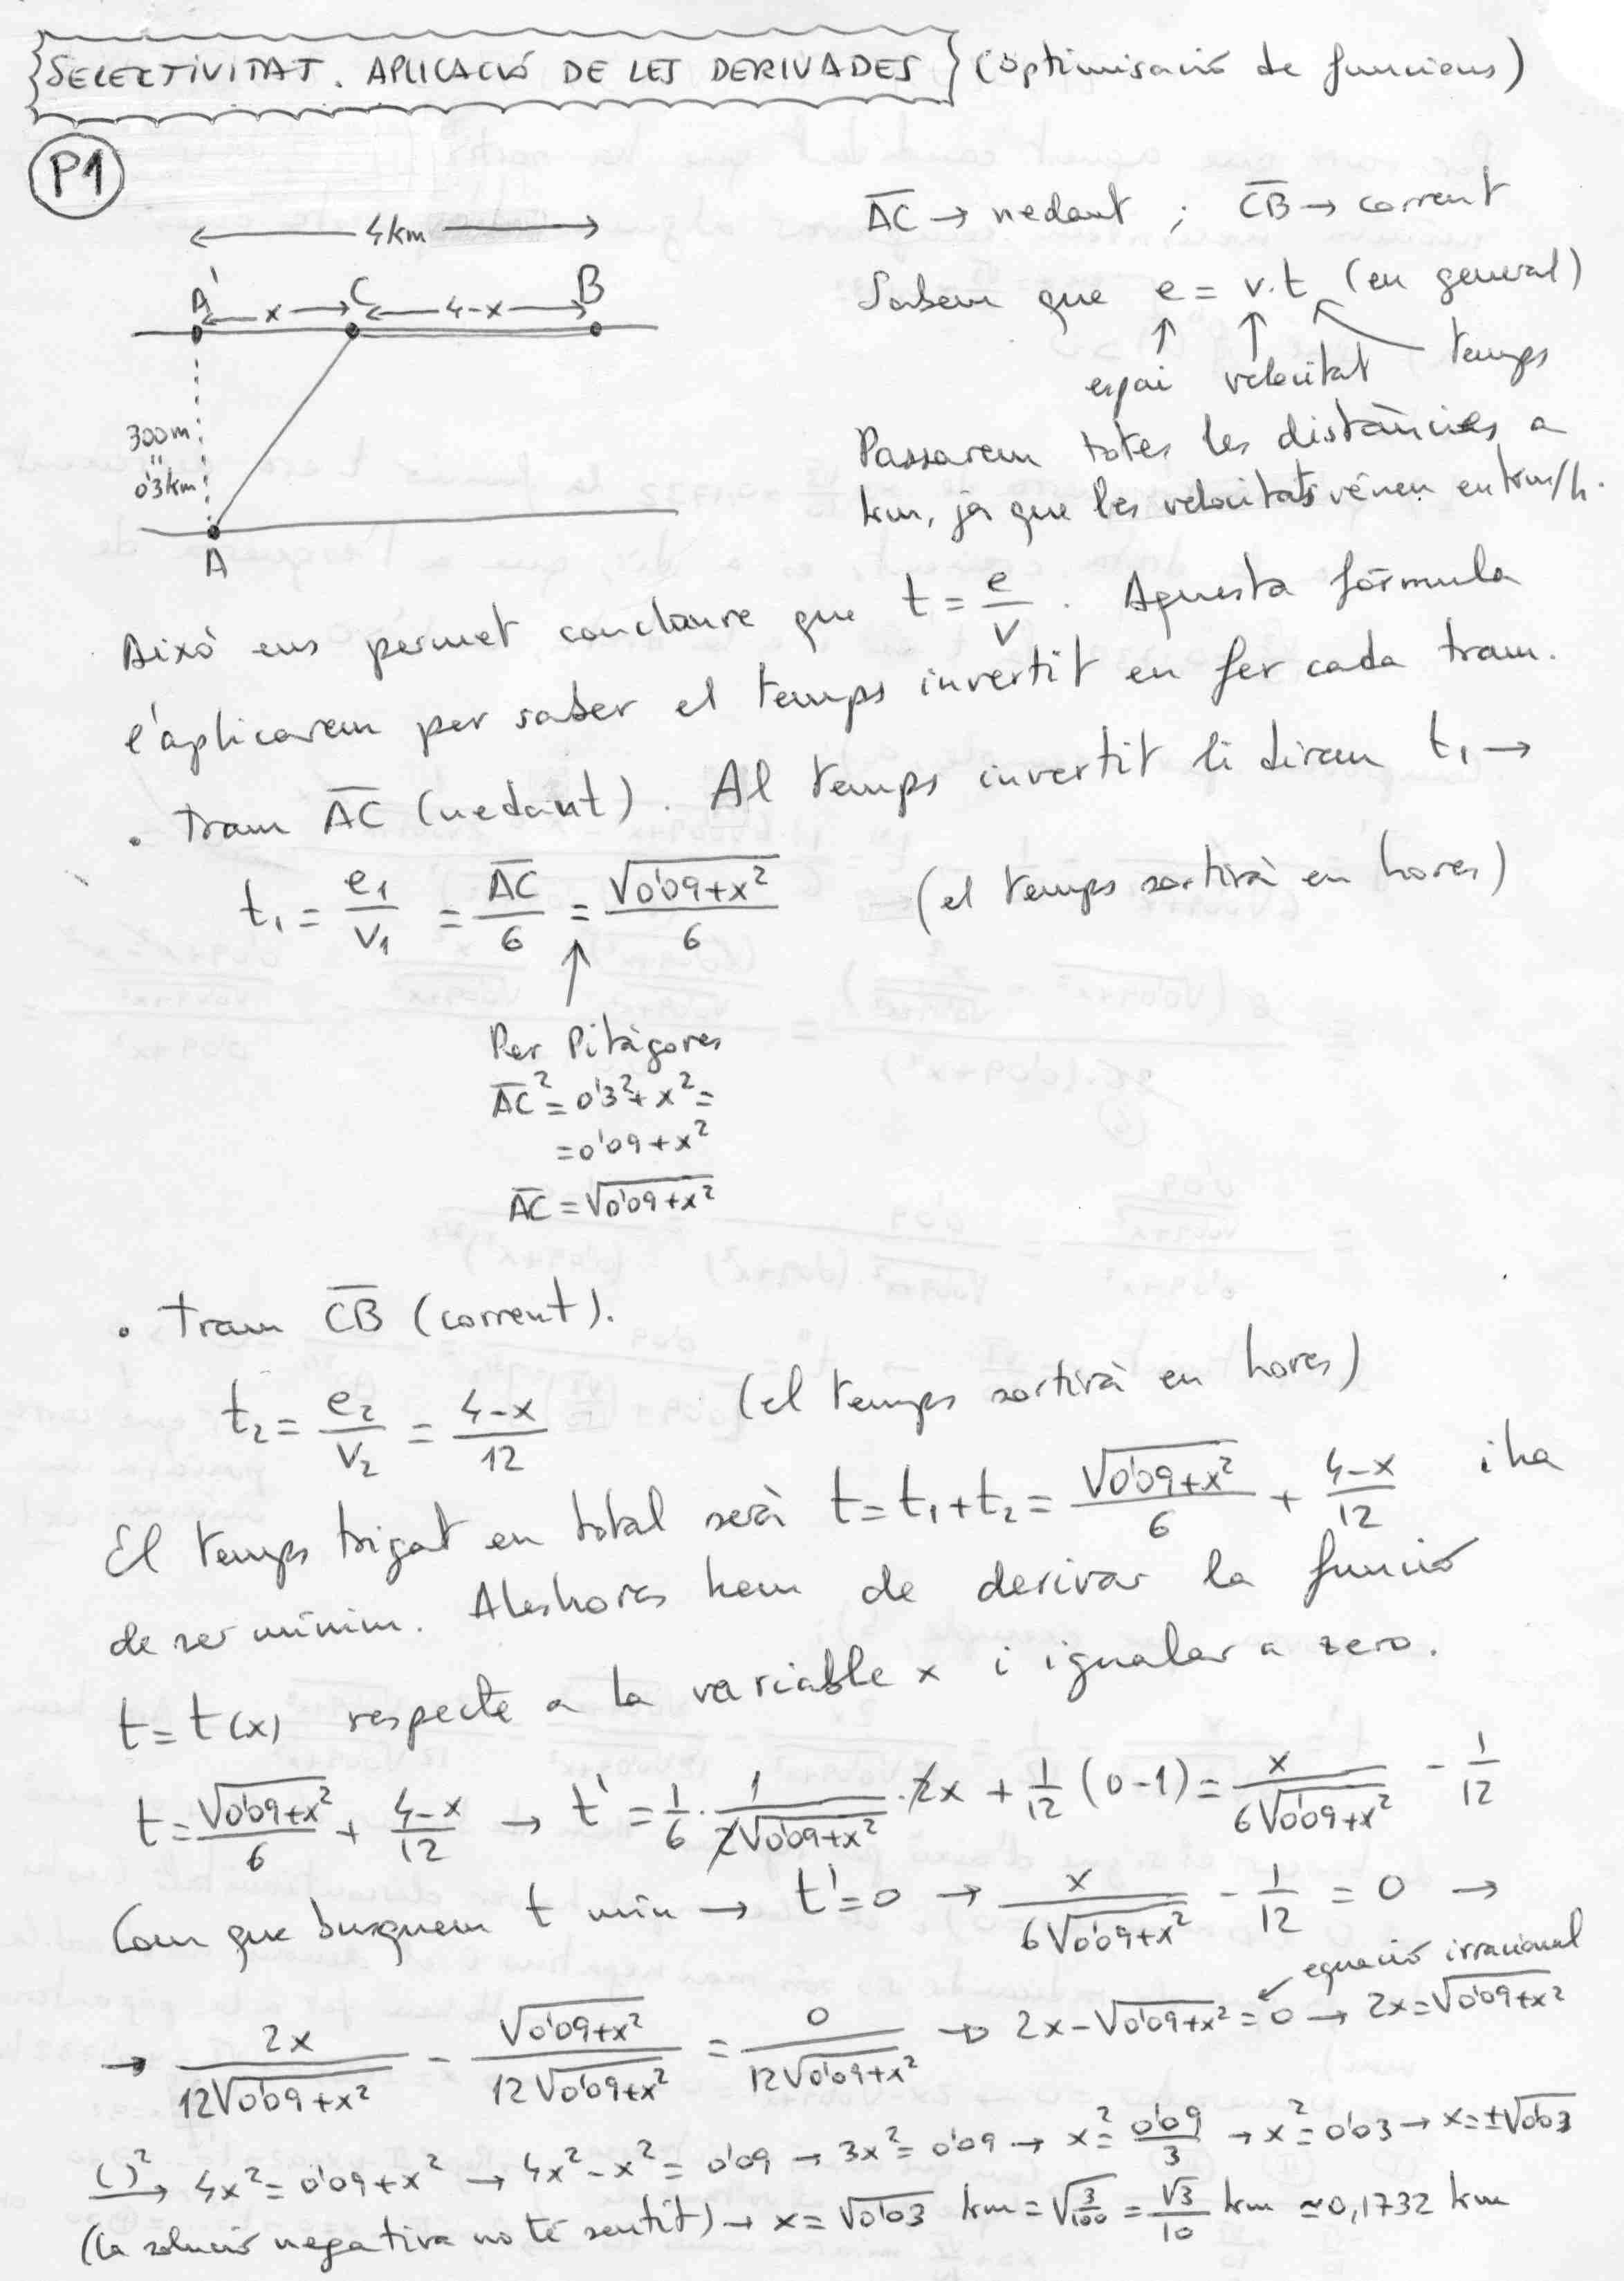 SELECTIVITAT. APLICACIÓ DE LES DERIVADES (optimisació de funcions)
P1
4km
A' x C 4-x B
300m
"
0'3km
A
AC → nedant ; CB → corrent
Sabem que e = v.t (en general)
espai velocitat temps
Passarem totes les distàncies a
km, ja que les velocitats vénen en km/h.
Això ens permet concloure que t = e/v. Aquesta fórmula
l'aplicarem per saber el temps invertit en fer cada tram.
• Tram AC (nedant). Al temps invertit li direm t₁ →
t₁ = e₁/v₁ = AC/6 = √(0'09+x²)/6 (el temps sortirà en hores)
Per Pitàgores
AC² = 0'3² + x² =
= 0'09 + x²
AC = √(0'09+x²)
• Tram CB (corrent).
t₂ = e₂/v₂ = (4-x)/12 (el temps sortirà en hores)
El temps trigat en total serà t = t₁ + t₂ = √(0'09+x²)/6 + (4-x)/12 i ha
de ser mínim. Aleshores hem de derivar la funció
t = t(x) respecte a la variable x i igualar a zero.
t = √(0'09+x²)/6 + (4-x)/12 → t' = 1/6 · 1/(2√(0'09+x²)) · 2x + 1/12 (0-1) = x/(6√(0'09+x²)) - 1/12
Com que busquem t mín → t' = 0 → x/(6√(0'09+x²)) - 1/12 = 0 →
equació irracional
→ 2x/(12√(0'09+x²)) - √(0'09+x²)/(12√(0'09+x²)) = 0/(12√(0'09+x²)) → 2x - √(0'09+x²) = 0 → 2x = √(0'09+x²)
( )² → 4x² = 0'09 + x² → 4x² - x² = 0'09 → 3x² = 0'09 → x² = 0'09/3 → x² = 0'03 → x = ±√0'03
(la solució negativa no té sentit) → x = √0'03 km = √(3/100) = √3/10 km ≈ 0,1732 km